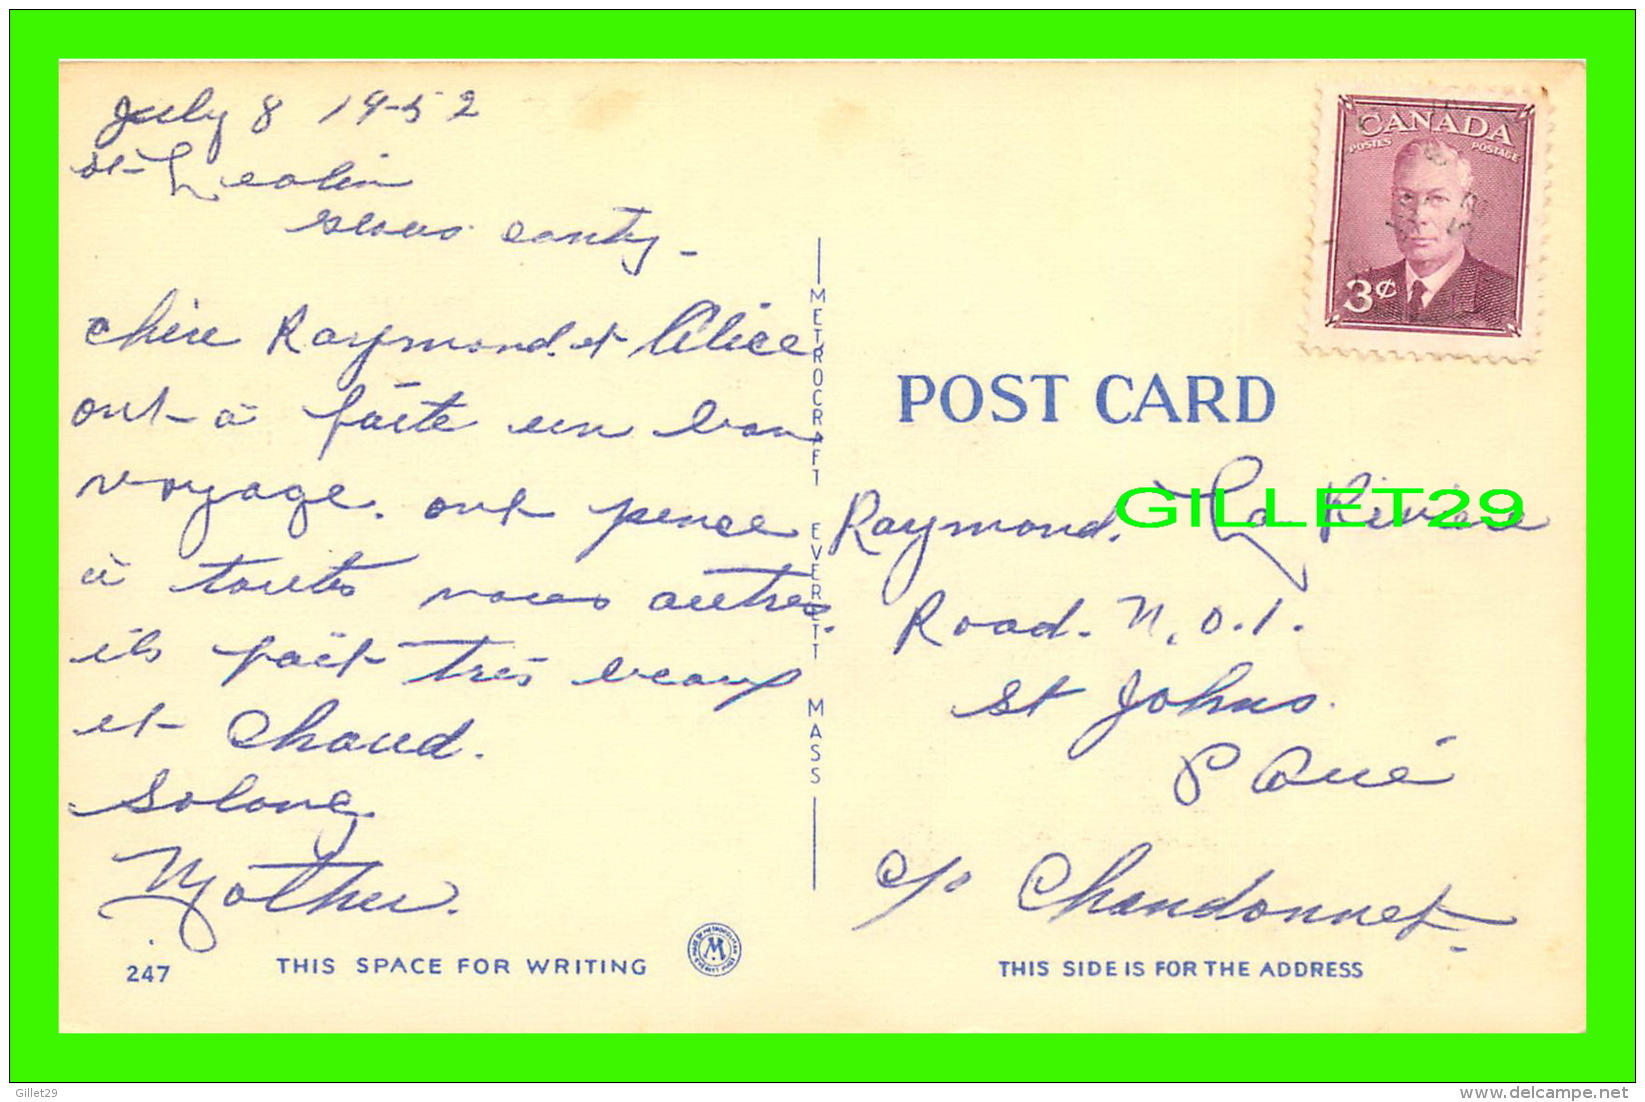 July 8 1952
st-
conty -
chère Raymond. et Alice
ont-à faite un bon
voyage. ont pence
à toutes vous autres.
ils fait très beaux
et chaud.
Solong
Mother.
247
THIS SPACE FOR WRITING
METROCRAFT EVERETT MASS
CANADA
POSTES POSTAGE
3¢
POST CARD
GILLET29
Raymond. La Rivière
Road. N.O.1.
St Johns.
P Qué
c/o Chandonnet
THIS SIDE IS FOR THE ADDRESS
Gillet29
delcampe.net